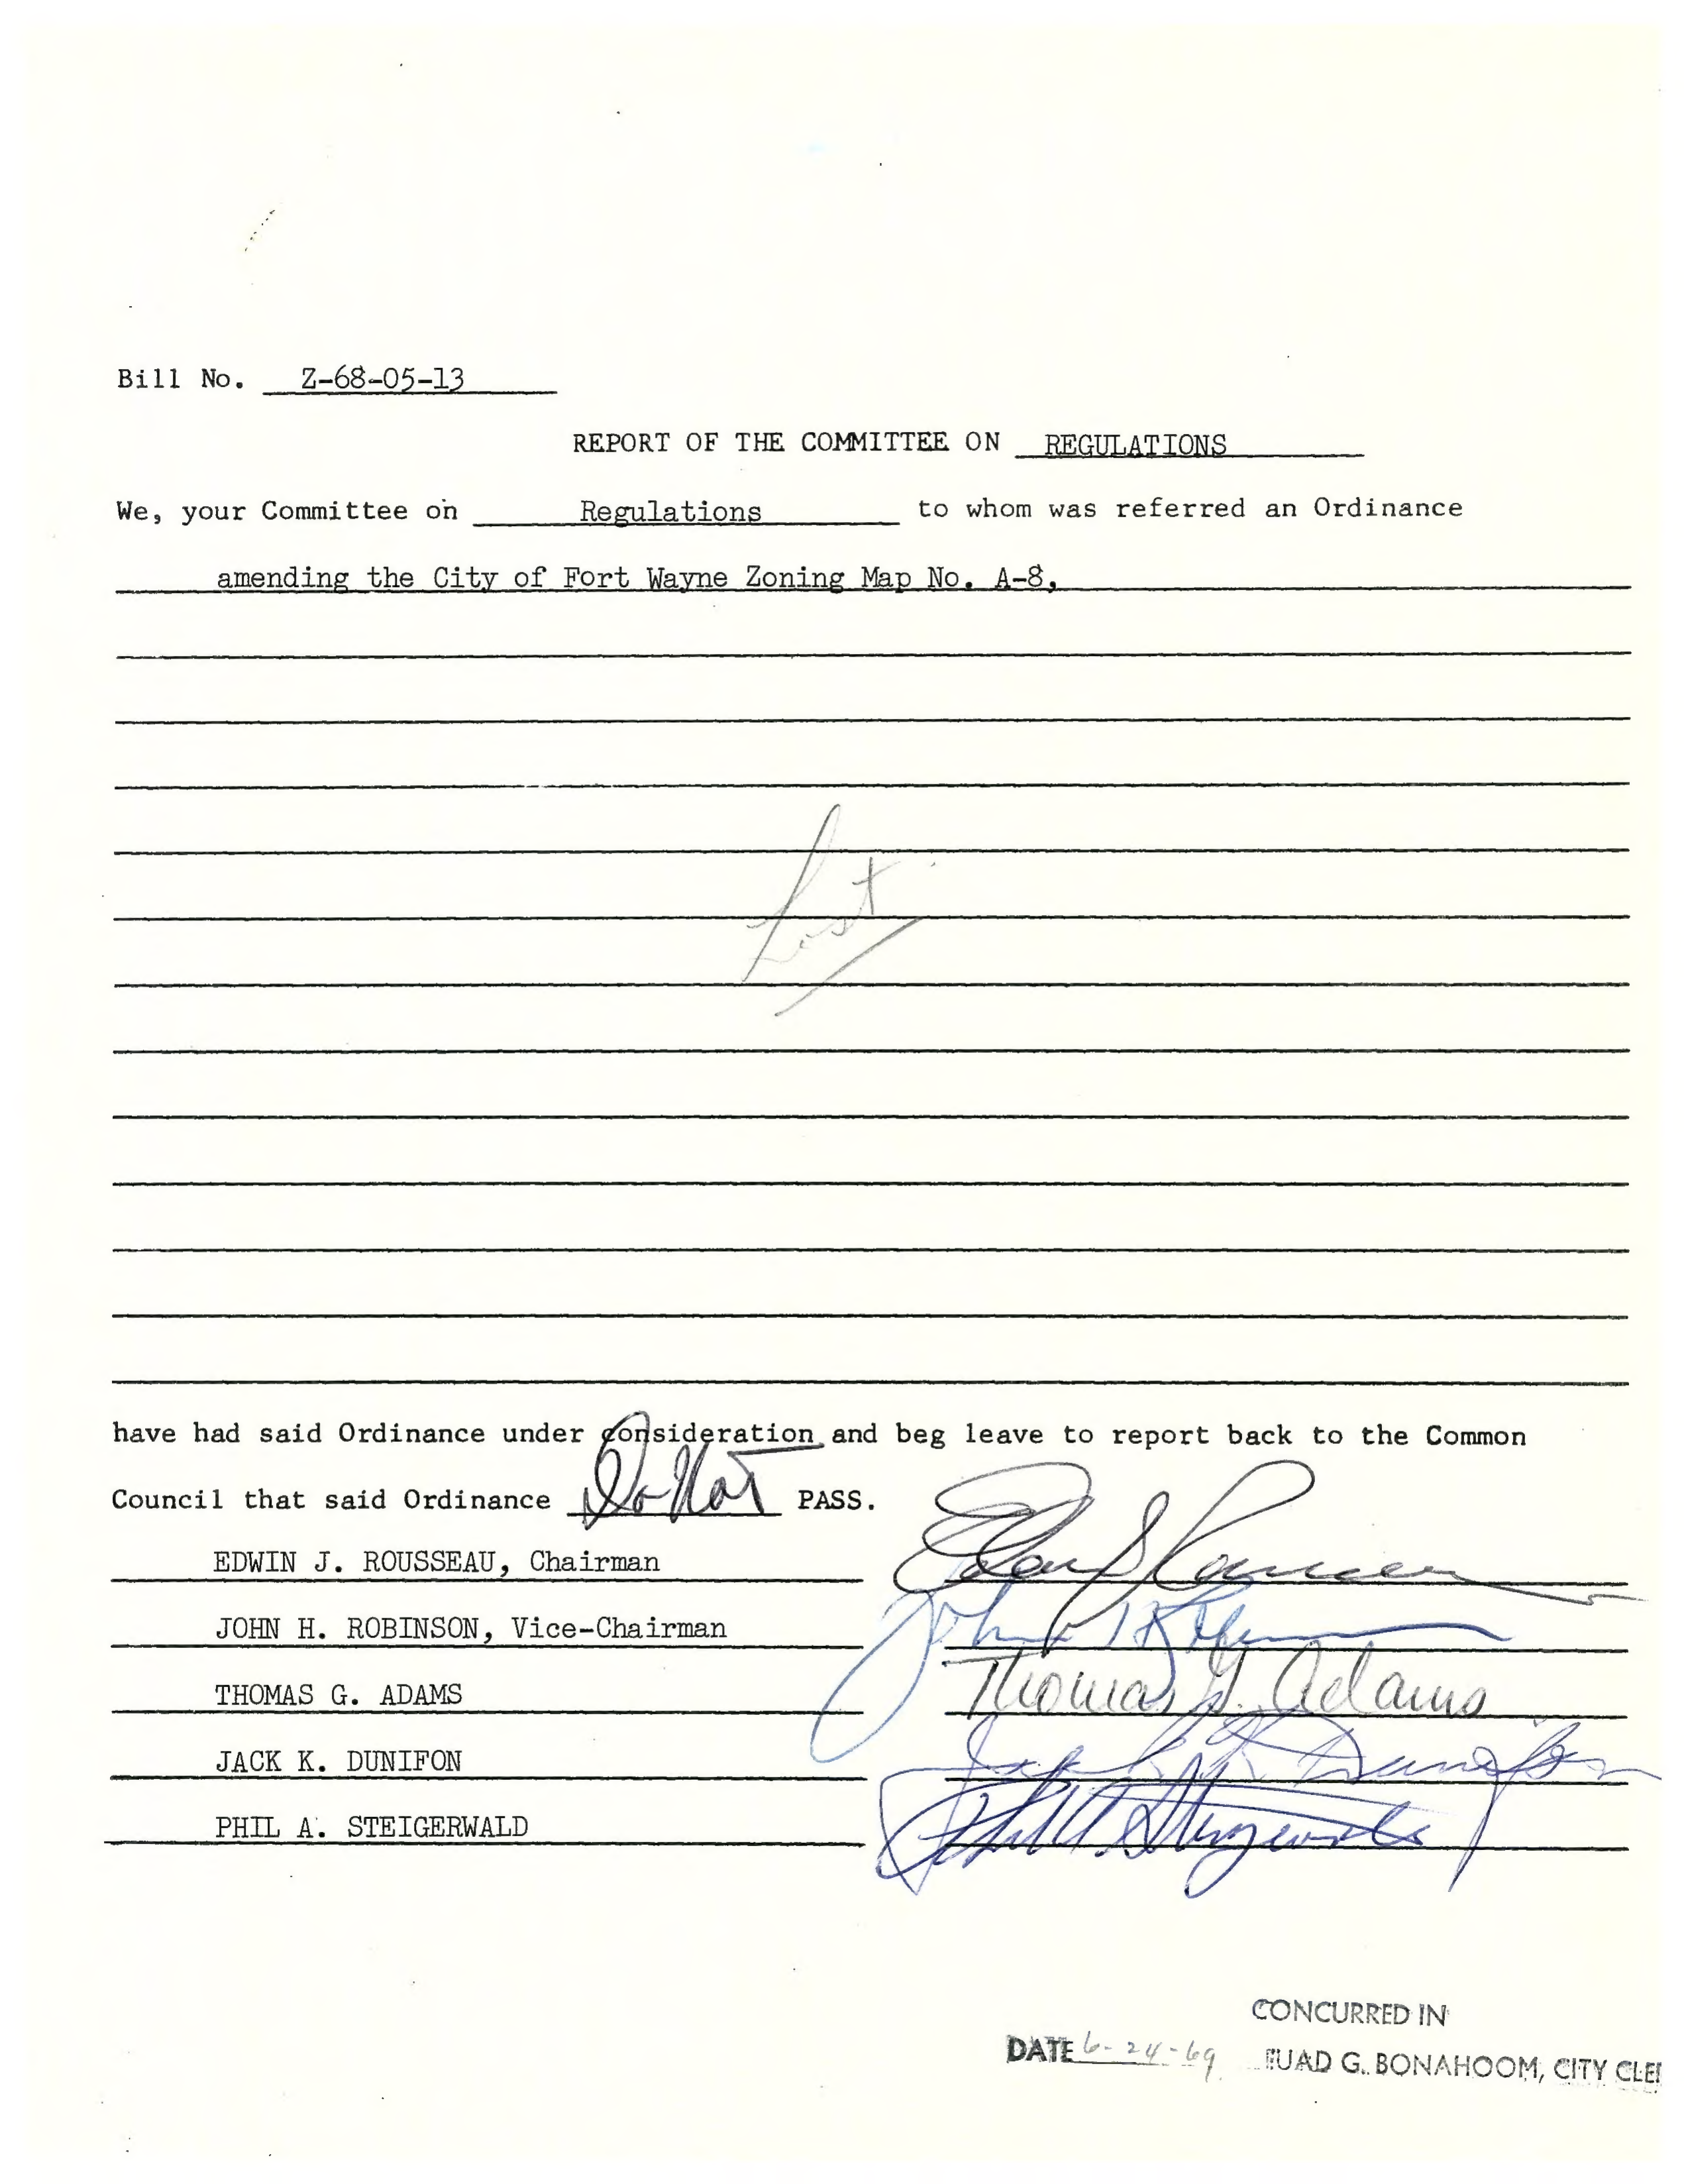 Bill No. Z-68-05-13
REPORT OF THE COMMITTEE ON REGULATIONS
We, your Committee on Regulations to whom was referred an Ordinance
amending the City of Fort Wayne Zoning Map No. A-8,
Lost
have had said Ordinance under consideration and beg leave to report back to the Common
Council that said Ordinance Do Not PASS.
EDWIN J. ROUSSEAU, Chairman
JOHN H. ROBINSON, Vice-Chairman
THOMAS G. ADAMS Thomas G. Adams
JACK K. DUNIFON Jack K Dunifon
PHIL A. STEIGERWALD Phil A. Steigerwald
CONCURRED IN
DATE 6-24-69 FUAD G. BONAHOOM, CITY CLE